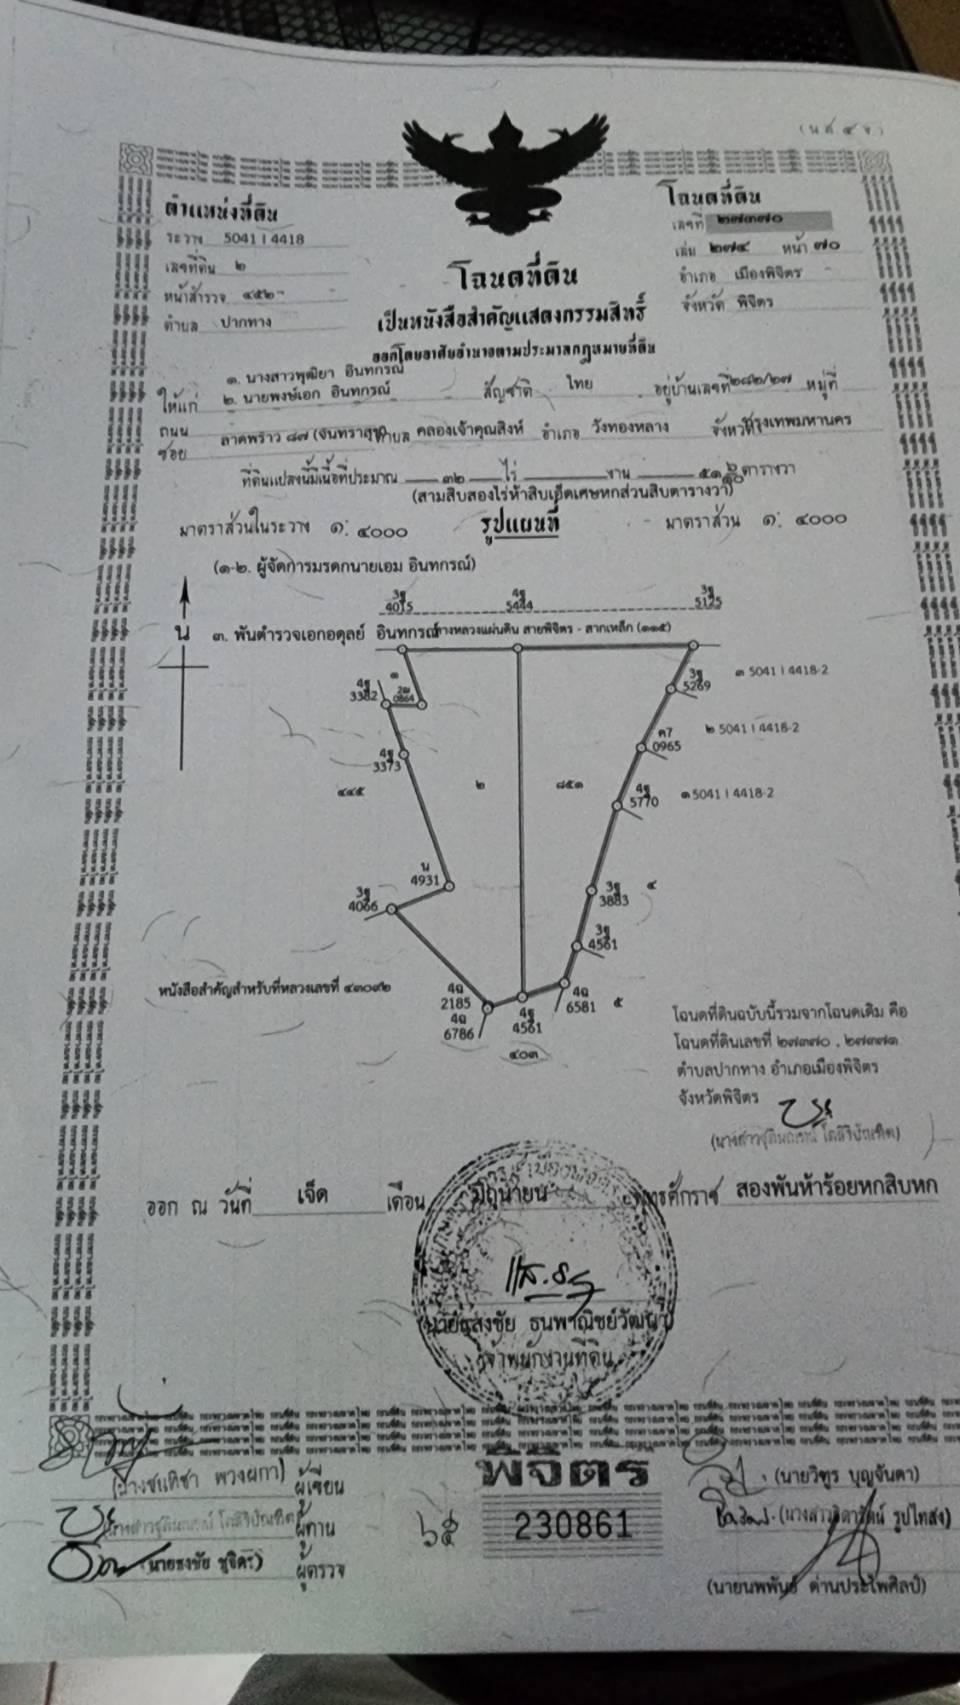 (น.ส.๔ จ)
ตำแหน่งที่ดิน
ระวาง 5041 I 4418
เลขที่ดิน ๒
หน้าสำรวจ ๔๕๒
ตำบล ปากทาง
โฉนดที่ดิน
เลขที่ ๒๗๓๗๐
เล่ม ๒๗๔ หน้า ๗๐
อำเภอ เมืองพิจิตร
จังหวัด พิจิตร
โฉนดที่ดิน
เป็นหนังสือสำคัญแสดงกรรมสิทธิ์
ออกโดยอาศัยอำนาจตามประมวลกฎหมายที่ดิน
๑. นางสาวพุฒิยา อินทกรณ์
ให้แก่ ๒. นายพงษ์เอก อินทกรณ์ สัญชาติ ไทย อยู่บ้านเลขที่ ๒๘๒/๒๗ หมู่ที่
ถนน
ซอย ลาดพร้าว ๘๗ (จันทราสุข) ตำบล คลองเจ้าคุณสิงห์ อำเภอ วังทองหลาง จังหวัด กรุงเทพมหานคร
ที่ดินแปลงนี้มีเนื้อที่ประมาณ ๓๒ ไร่ งาน ๕๑ ๖/๑๐ ตารางวา
(สามสิบสองไร่ห้าสิบเอ็ดเศษหกส่วนสิบตารางวา)
มาตราส่วนในระวาง ๑: ๔๐๐๐ รูปแผนที่ มาตราส่วน ๑: ๔๐๐๐
(๑-๒. ผู้จัดการมรดกนายเอม อินทกรณ์)
3ฐ 4015
4ฐ 5444
3ฐ 5125
น ๓. พันตำรวจเอกอดุลย์ อินทกรณ์
ทางหลวงแผ่นดิน สายพิจิตร - สากเหล็ก (๑๑๕)
๑
4ฐ 3382
0864
3ฐ 5269
๓ 5041 I 4418-2
ค7 0965
๒ 5041 I 4418-2
4ฐ 3373
๔๔๕
๒
๘๕๑
4ฐ 5770
๑ 5041 I 4418-2
น 4931
3ฐ 4066
3ฐ 3883
๔
3ฐ 4561
หนังสือสำคัญสำหรับที่หลวงเลขที่ ๔๓๐๙๒
4ฉ 2185
4ฉ 6786
4ฐ 4561
4ฉ 6581
๕
๔๐๓
โฉนดที่ดินฉบับนี้รวมจากโฉนดเดิม คือ
โฉนดที่ดินเลขที่ ๒๗๓๗๐ , ๒๗๓๗๑
ตำบลปากทาง อำเภอเมืองพิจิตร
จังหวัดพิจิตร
ออก ณ วันที่ เจ็ด เดือน มิถุนายน พุทธศักราช สองพันห้าร้อยหกสิบหก
(นายแสงชัย ธนพาณิชย์วัฒนา)
เจ้าพนักงานที่ดิน
พิจิตร
230861
พวงผกา) ผู้เขียน
ผู้ทาน
(นายธงชัย ชูจิตร) ผู้ตรวจ
(นายวิฑูร บุญจันดา)
รูปไทสง)
(นายนพพันธ์ ด่านประไพศิลป์)